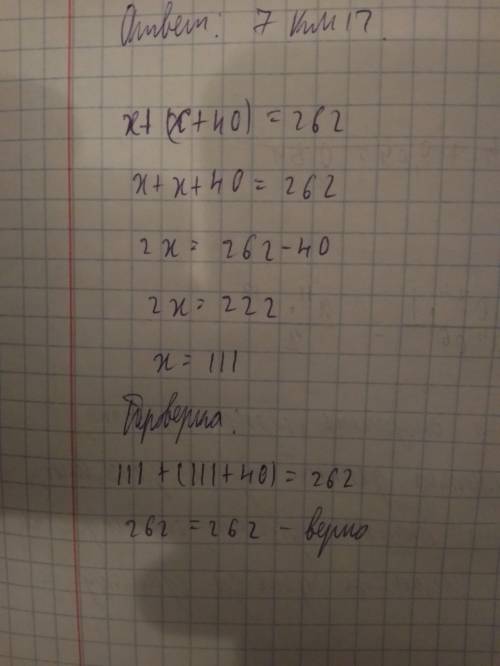 Ответ: 7 км/ч.
x+(x+40)=262
x+x+40=262
2x=262-40
2x=222
x=111
Проверка:
111+(111+40)=262
262=262 - верно